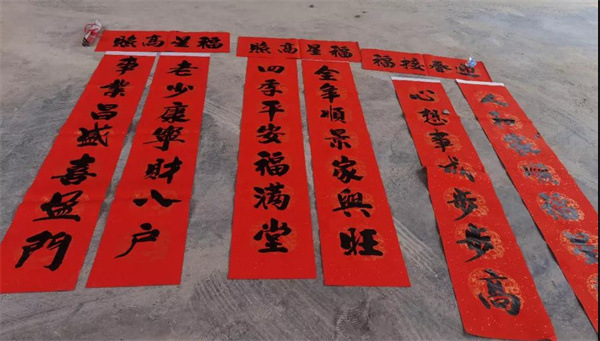 福星高照
老少康寧財入户
事業昌盛喜盈門
福星高照
全年順景家興旺
四季平安福滿堂
迎春接福
心想事成步步高